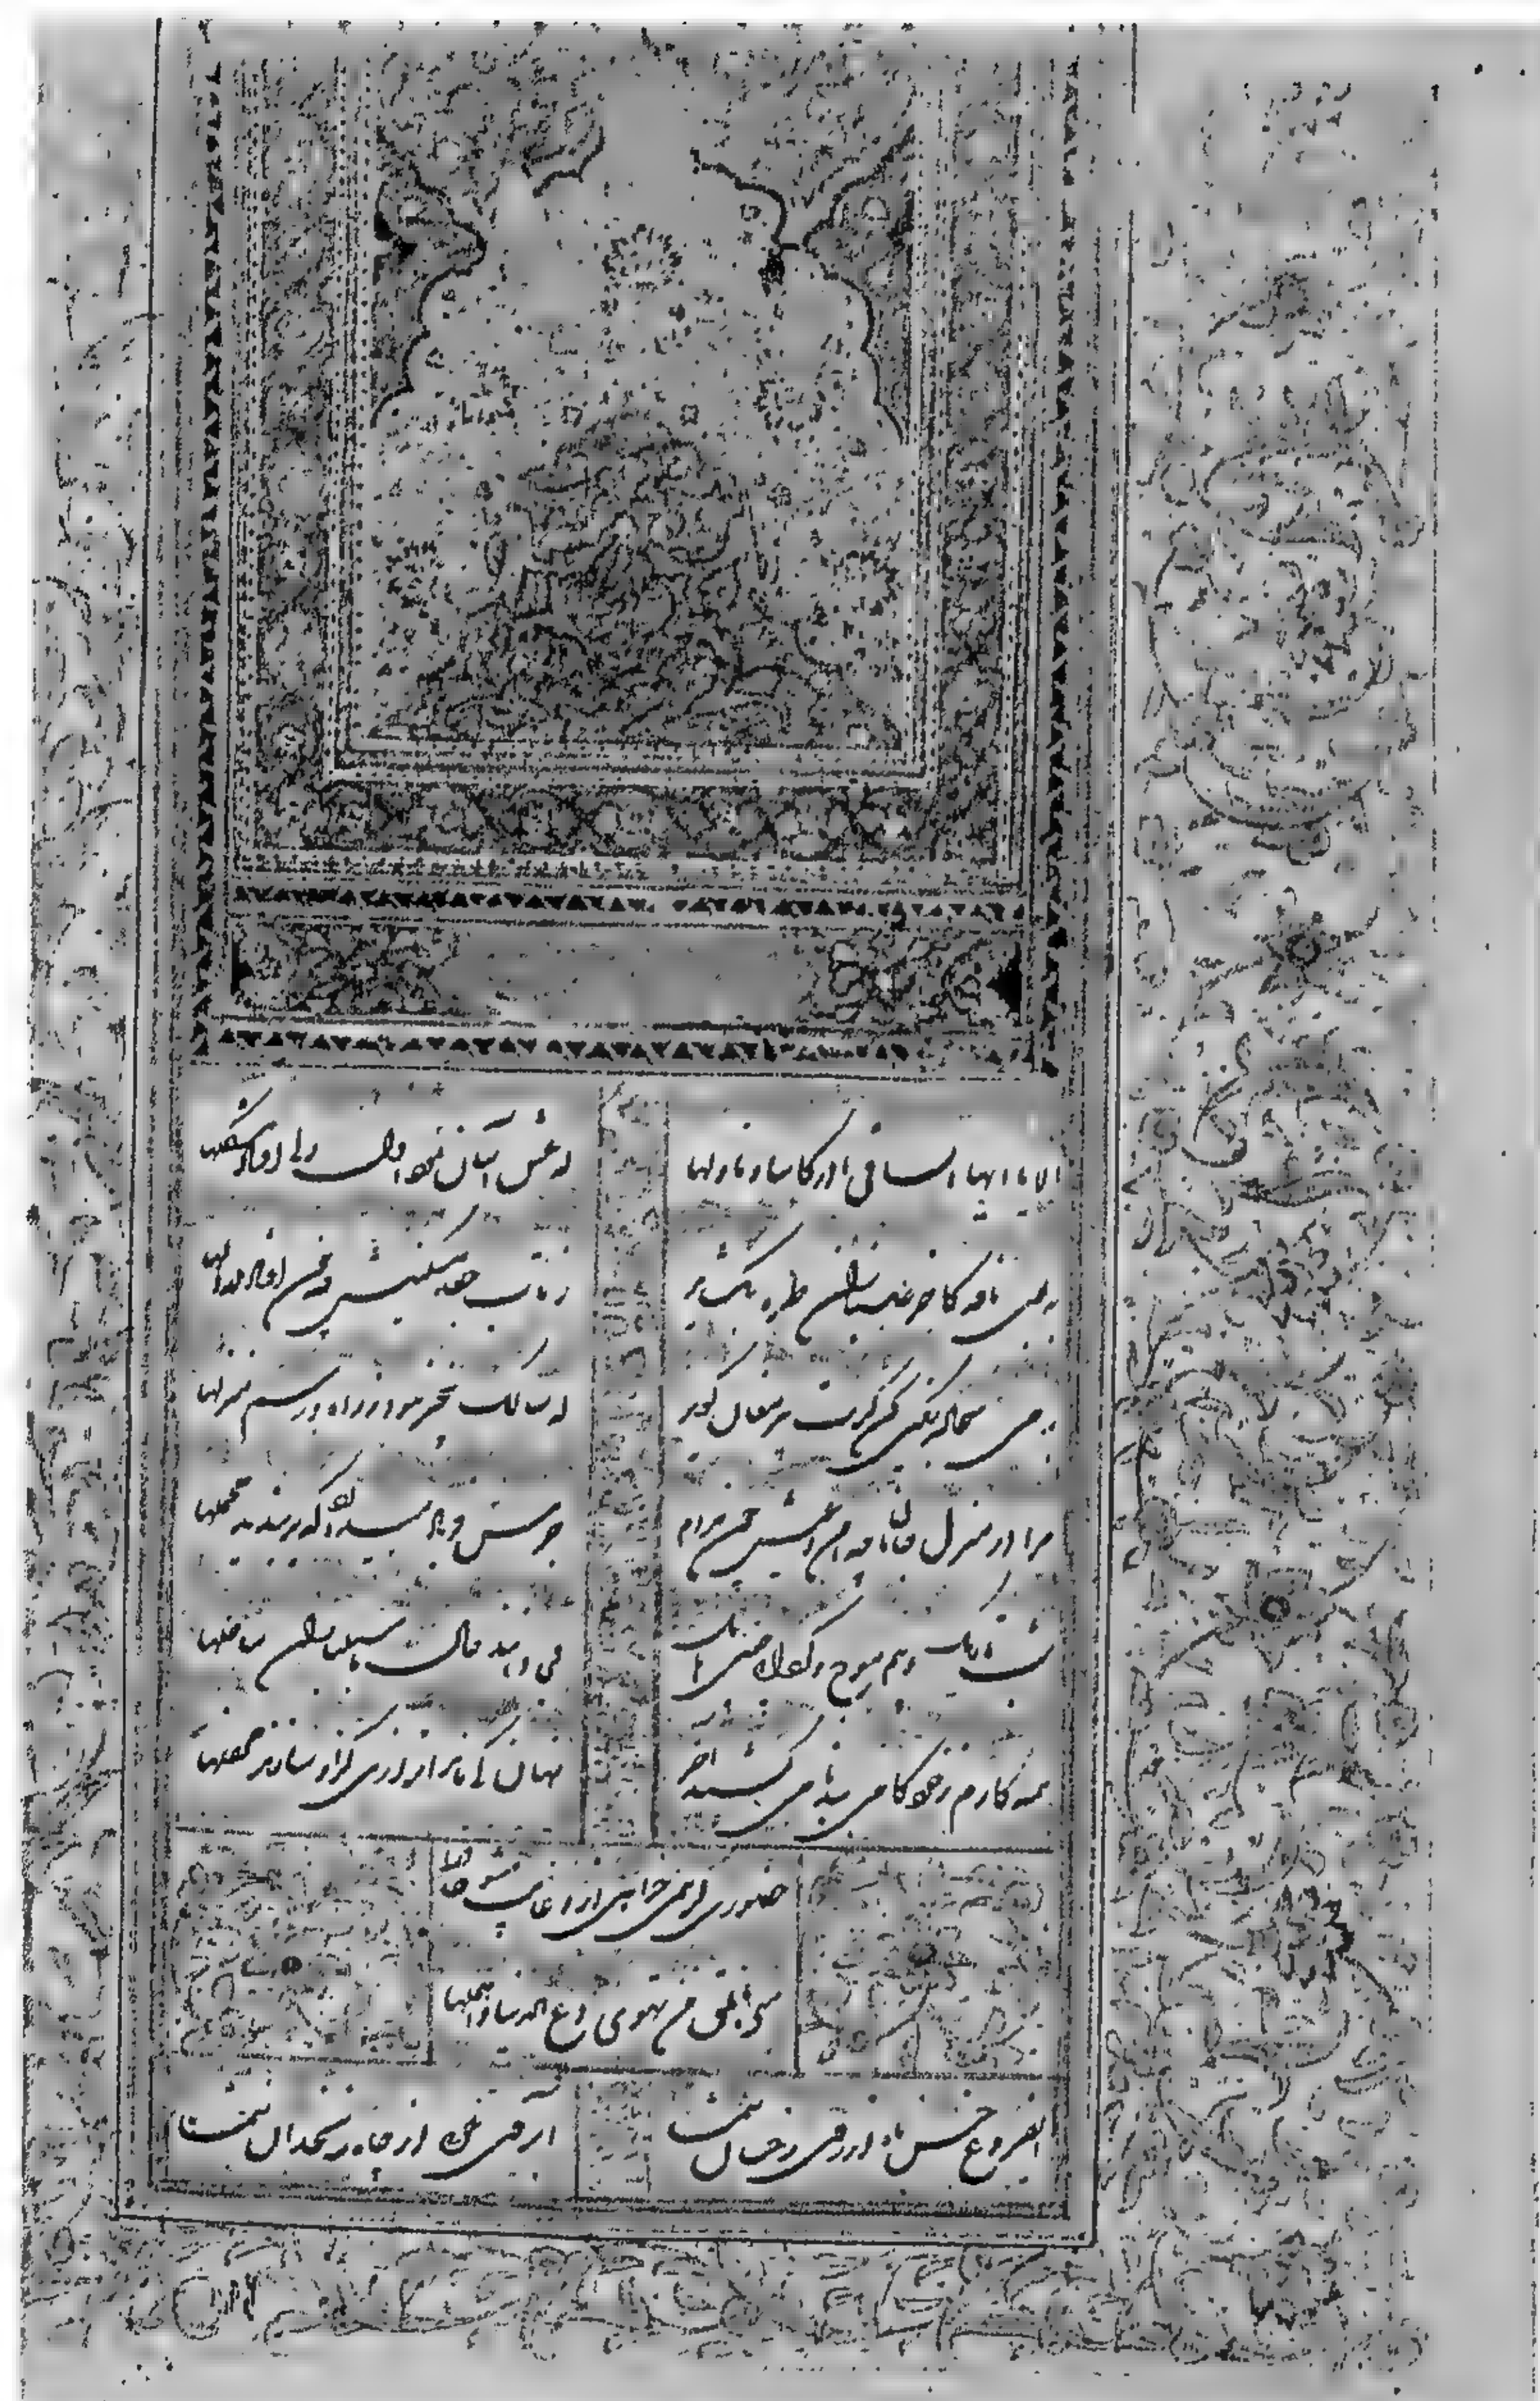 الا یا ایها الساقی ادر کاسا و ناولها که عشق آسان نمود اول ولی افتاد مشکلها
ببوی نافه کاخر صبا زان طره بگشاید ز تاب جعد مشکینش چه خون افتاد در دلها
بمی سجاده رنگین کن گرت پیر مغان گوید که سالک بیخبر نبود ز راه و رسم منزلها
مرا در منزل جانان چه امن و عیش چون هر دم جرس فریاد میدارد که بربندید محملها
شب تاریک و بیم موج و گردابی چنین هایل کجا دانند حال ما سبکباران ساحلها
همه کارم ز خود کامی ببدنامی کشید آخر نهان کی ماند آن رازی کزو سازند محفلها
حضوری گر همی خواهی ازو غایب مشو حافظ
متی ما تلق من تهوی دع الدنیا و اهملها
ای فروغ حسن ماه از روی رخشان شما آبروی خوبی از چاه زنخدان شما